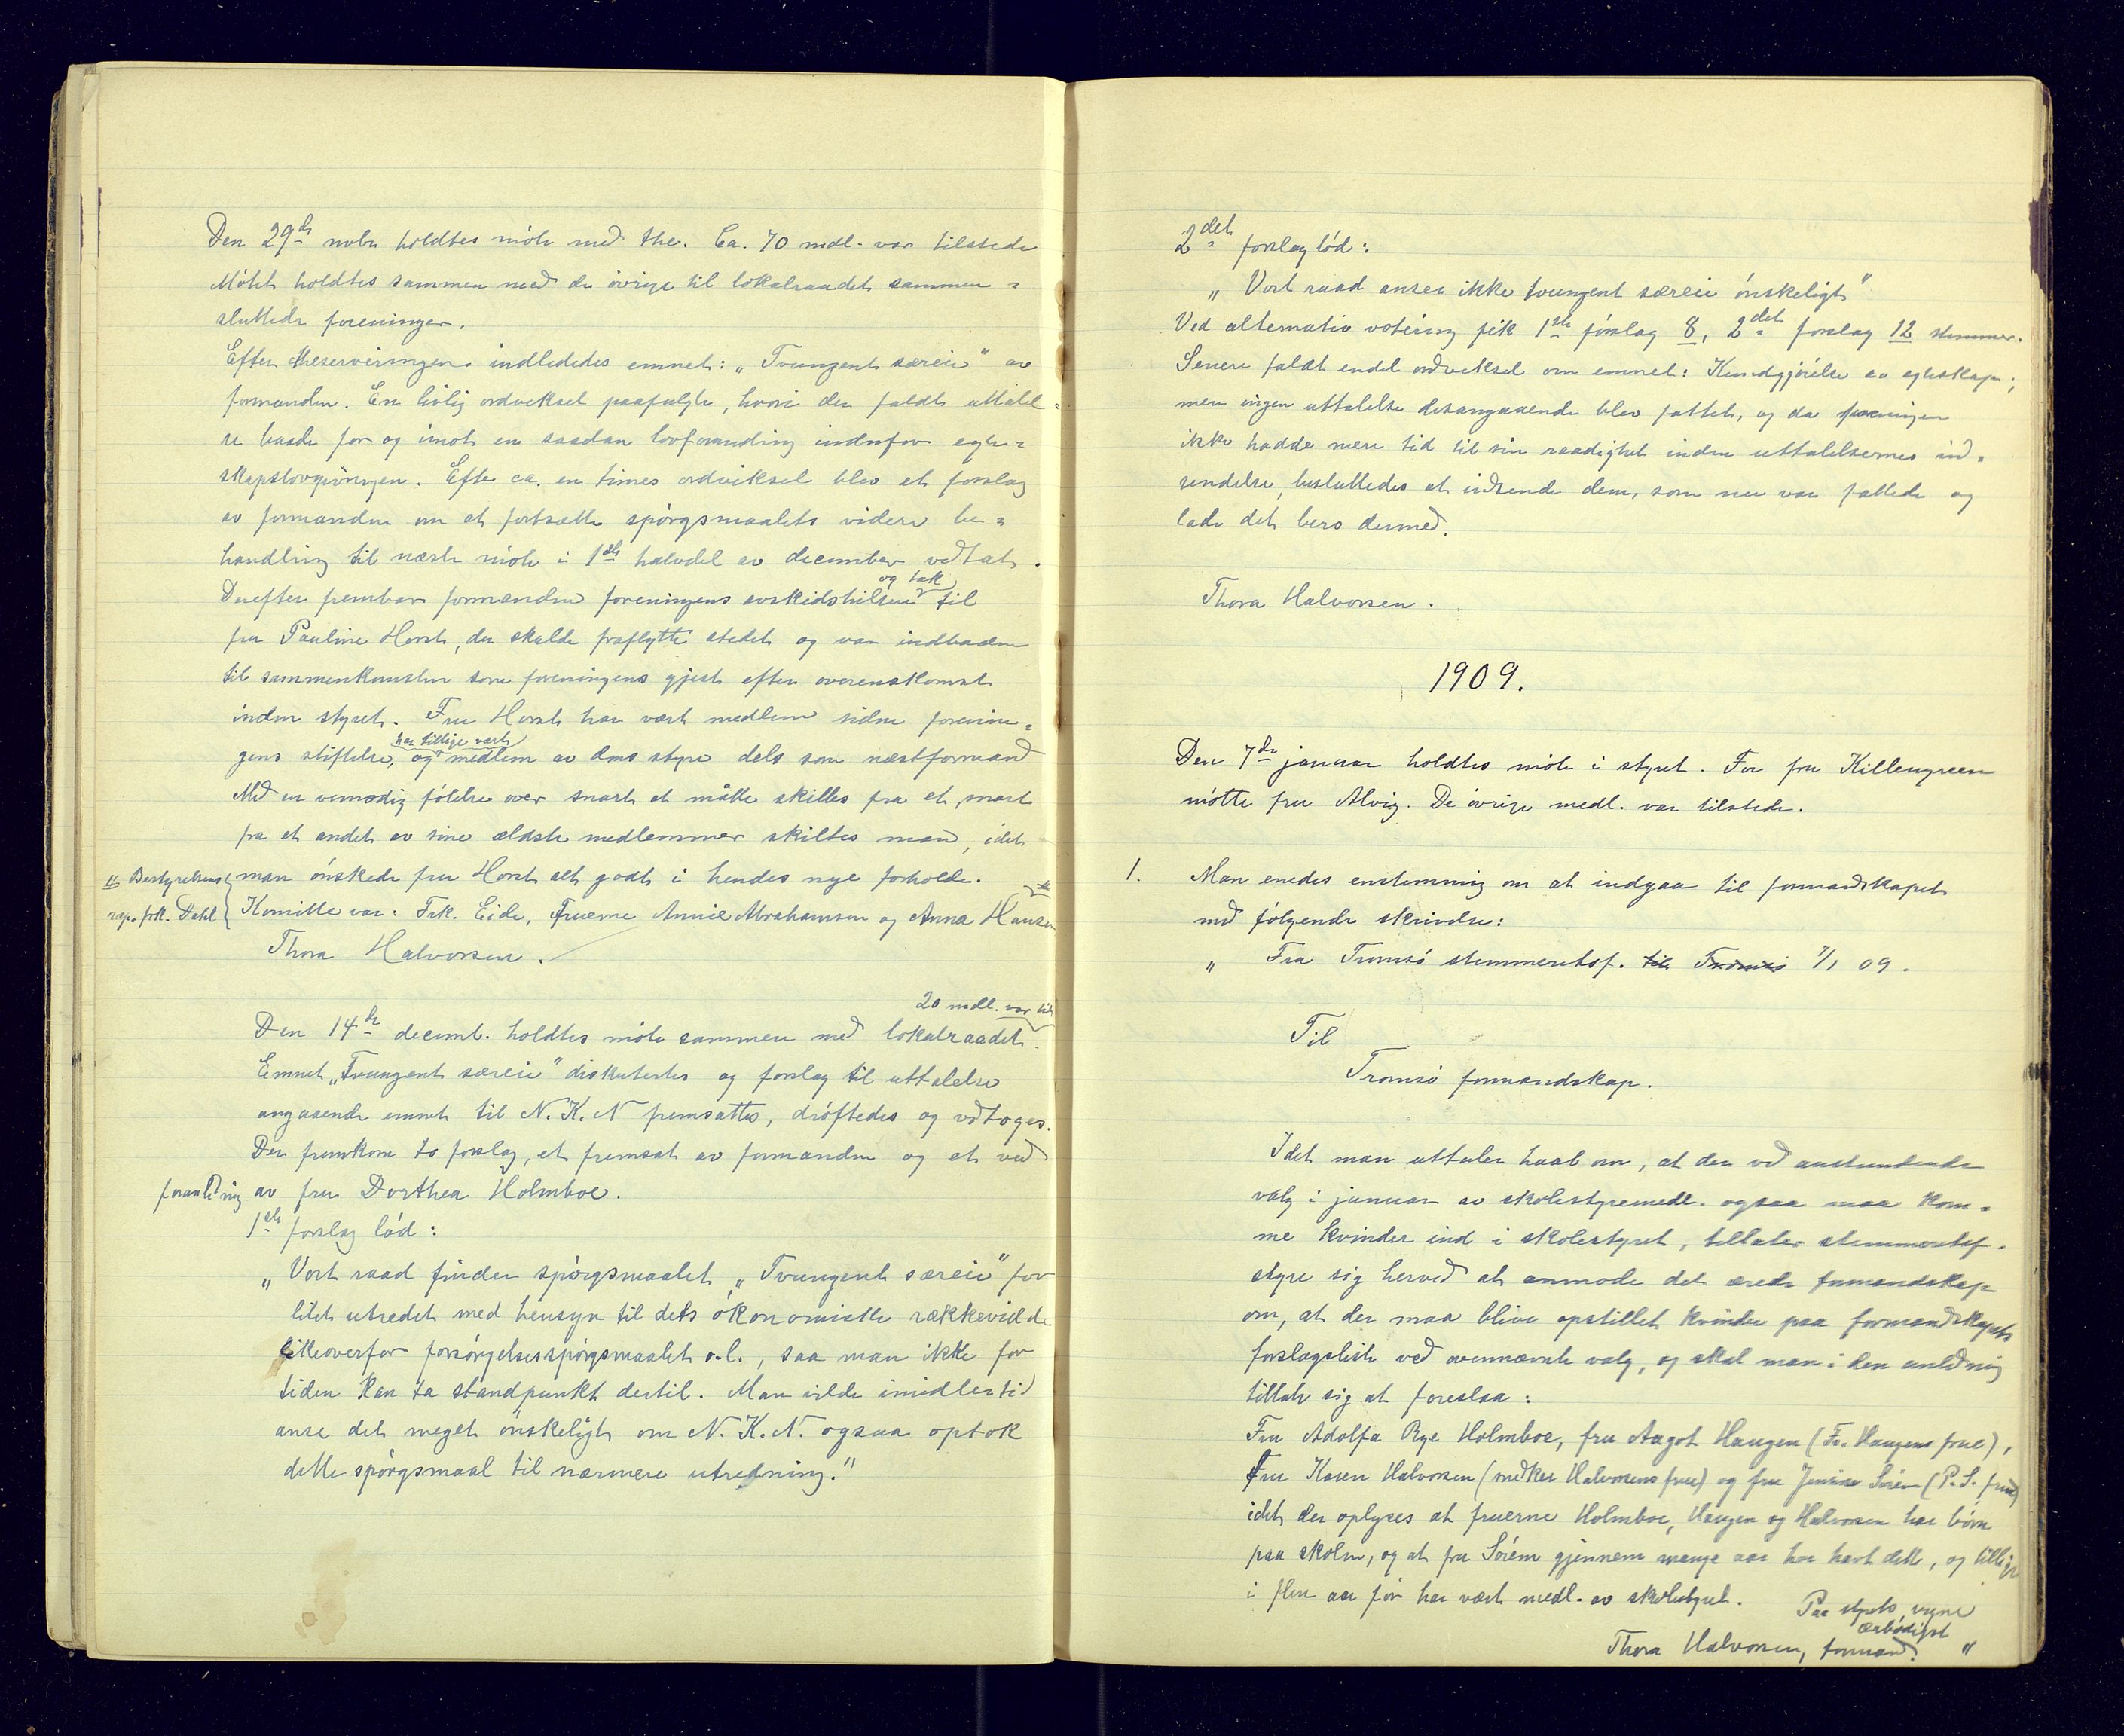 Den 29de novbr holdtes möte med the. Ca. 70 mdl. var tilstede
Mötet holdtes sammen med de övrige til lokalraadet sammen=
sluttede foreninger.
Efter theserveringen indlededes emnet: „Tvungent særeie" av
formanden. En livlig ordveksel paafulgte, hvori der faldt uttalel=
se baade for og imot en saadan lovforandring indenfor egte=
skapslovgivningen. Efter ca. en times ordveksel blev et forslag
av formanden om at fortsætte spörgsmaalets videre be=
handling til næste möte i 1ste halvdel av december vedtat.
Derefter frembar formanden foreningens avskedshilsen og tak til
fru Pauline Horst, der skulde fraflytte stedet og var indbuden
til sammenkomsten som foreningens gjest efter overenskomst
inden styret. Fru Horst har vært medlem siden forenin=
gens stiftelse, og har tillige vært medlem av dens styre dels som næstformand
Med en vemodig fölelse over snart at måtte skilles fra et, snart
fra et andet av sine ældste medlemmer skiltes man, idet
man önskede fru Horst alt godt i hendes nye forholde.
Komitte var: Frk. Eide, Fruerne Annie Abrahamsen og Anna Hansen
" Bestyrelsens
rep. frk. Dahl
Thora Halvorsen.
Den 14de decemb. holdtes möte sammen med lokalraadet. 20 medl. var til
Emnet „Tvungent særeie" diskutertes og forslag til uttalelse
angaaende emnet til N.K.N fremsattes, dröftedes og vedtoges.
Der fremkom to forslag, et fremsat av formanden og et ved
foranledning av fru Dorthea Holmboe.
1ste forslag löd:
„Vort raad finder spörgsmaalet „Tvungent særeie" for
litet utredet med hensyn til dets ökonomiske rækkevidde
likeoverfor forsörgelsesspörgsmaalet o.l., saa man ikke for
tiden kan ta standpunkt dertil. Man vilde imidlertid
anse det meget önskeligt om N.K.N. ogsaa optok
dette spörgsmaal til nærmere utredning."
2det forslag löd:
„Vort raad anser ikke tvungent særeie önskeligt"
Ved alternativ votering fik 1ste forslag 8, 2det forslag 12 stemmer.
Senere faldt endel ordveksel om emnet: Kundgjörelse av egteskap;
men ingen uttalelse desangaaende blev fattet, og da foreningen
ikke hadde mere tid til sin raadighet inden uttalelsernes ind=
sendelse, besluttedes at indsende dem, som nu var fattede og
lade det bero dermed.
Thora Halvorsen.
1909.
Den 7de januar holdtes möte i styret. For fru Killengreen
mötte fru Alvig. De övrige medl. var tilstede.
1. Man enedes enstemmig om at indgaa til formandskapet
med fölgende skrivelse:
„Fra Tromsö stemmeretsf. til Tromsö 7/1 09.
Til
Tromsö formandskap.
Idet man uttaler haab om, at der ved anstundende
valg i januar av skolestyremedl. ogsaa maa kom=
me kvinder ind i skolestyret, tillater stemmeretsf.
styre sig herved at anmode det ærede formandskap
om, at der maa blive opstillet kvinder paa formandskapets
forslagsliste ved ovennævnte valg, og skal man i den anledning
tillate sig at foreslaa:
Fru Adolfa Rye Holmboe, fru Aagot Haugen (Fr. Haugens frue),
Fru Karen Halvorsen (mækler Halvorsens frue) og fru Jensine Sörem (P.S. frue)
idet der oplyses at fruerne Holmboe, Haugen og Halvorsen har börn
paa skolen, og at fru Sörem gjennem mange aar har havt dette, og tillige
i flere aar för har vært medl. av skolestyret.
Paa styrets vegne
ærbödigst
Thora Halvorsen, formand. "